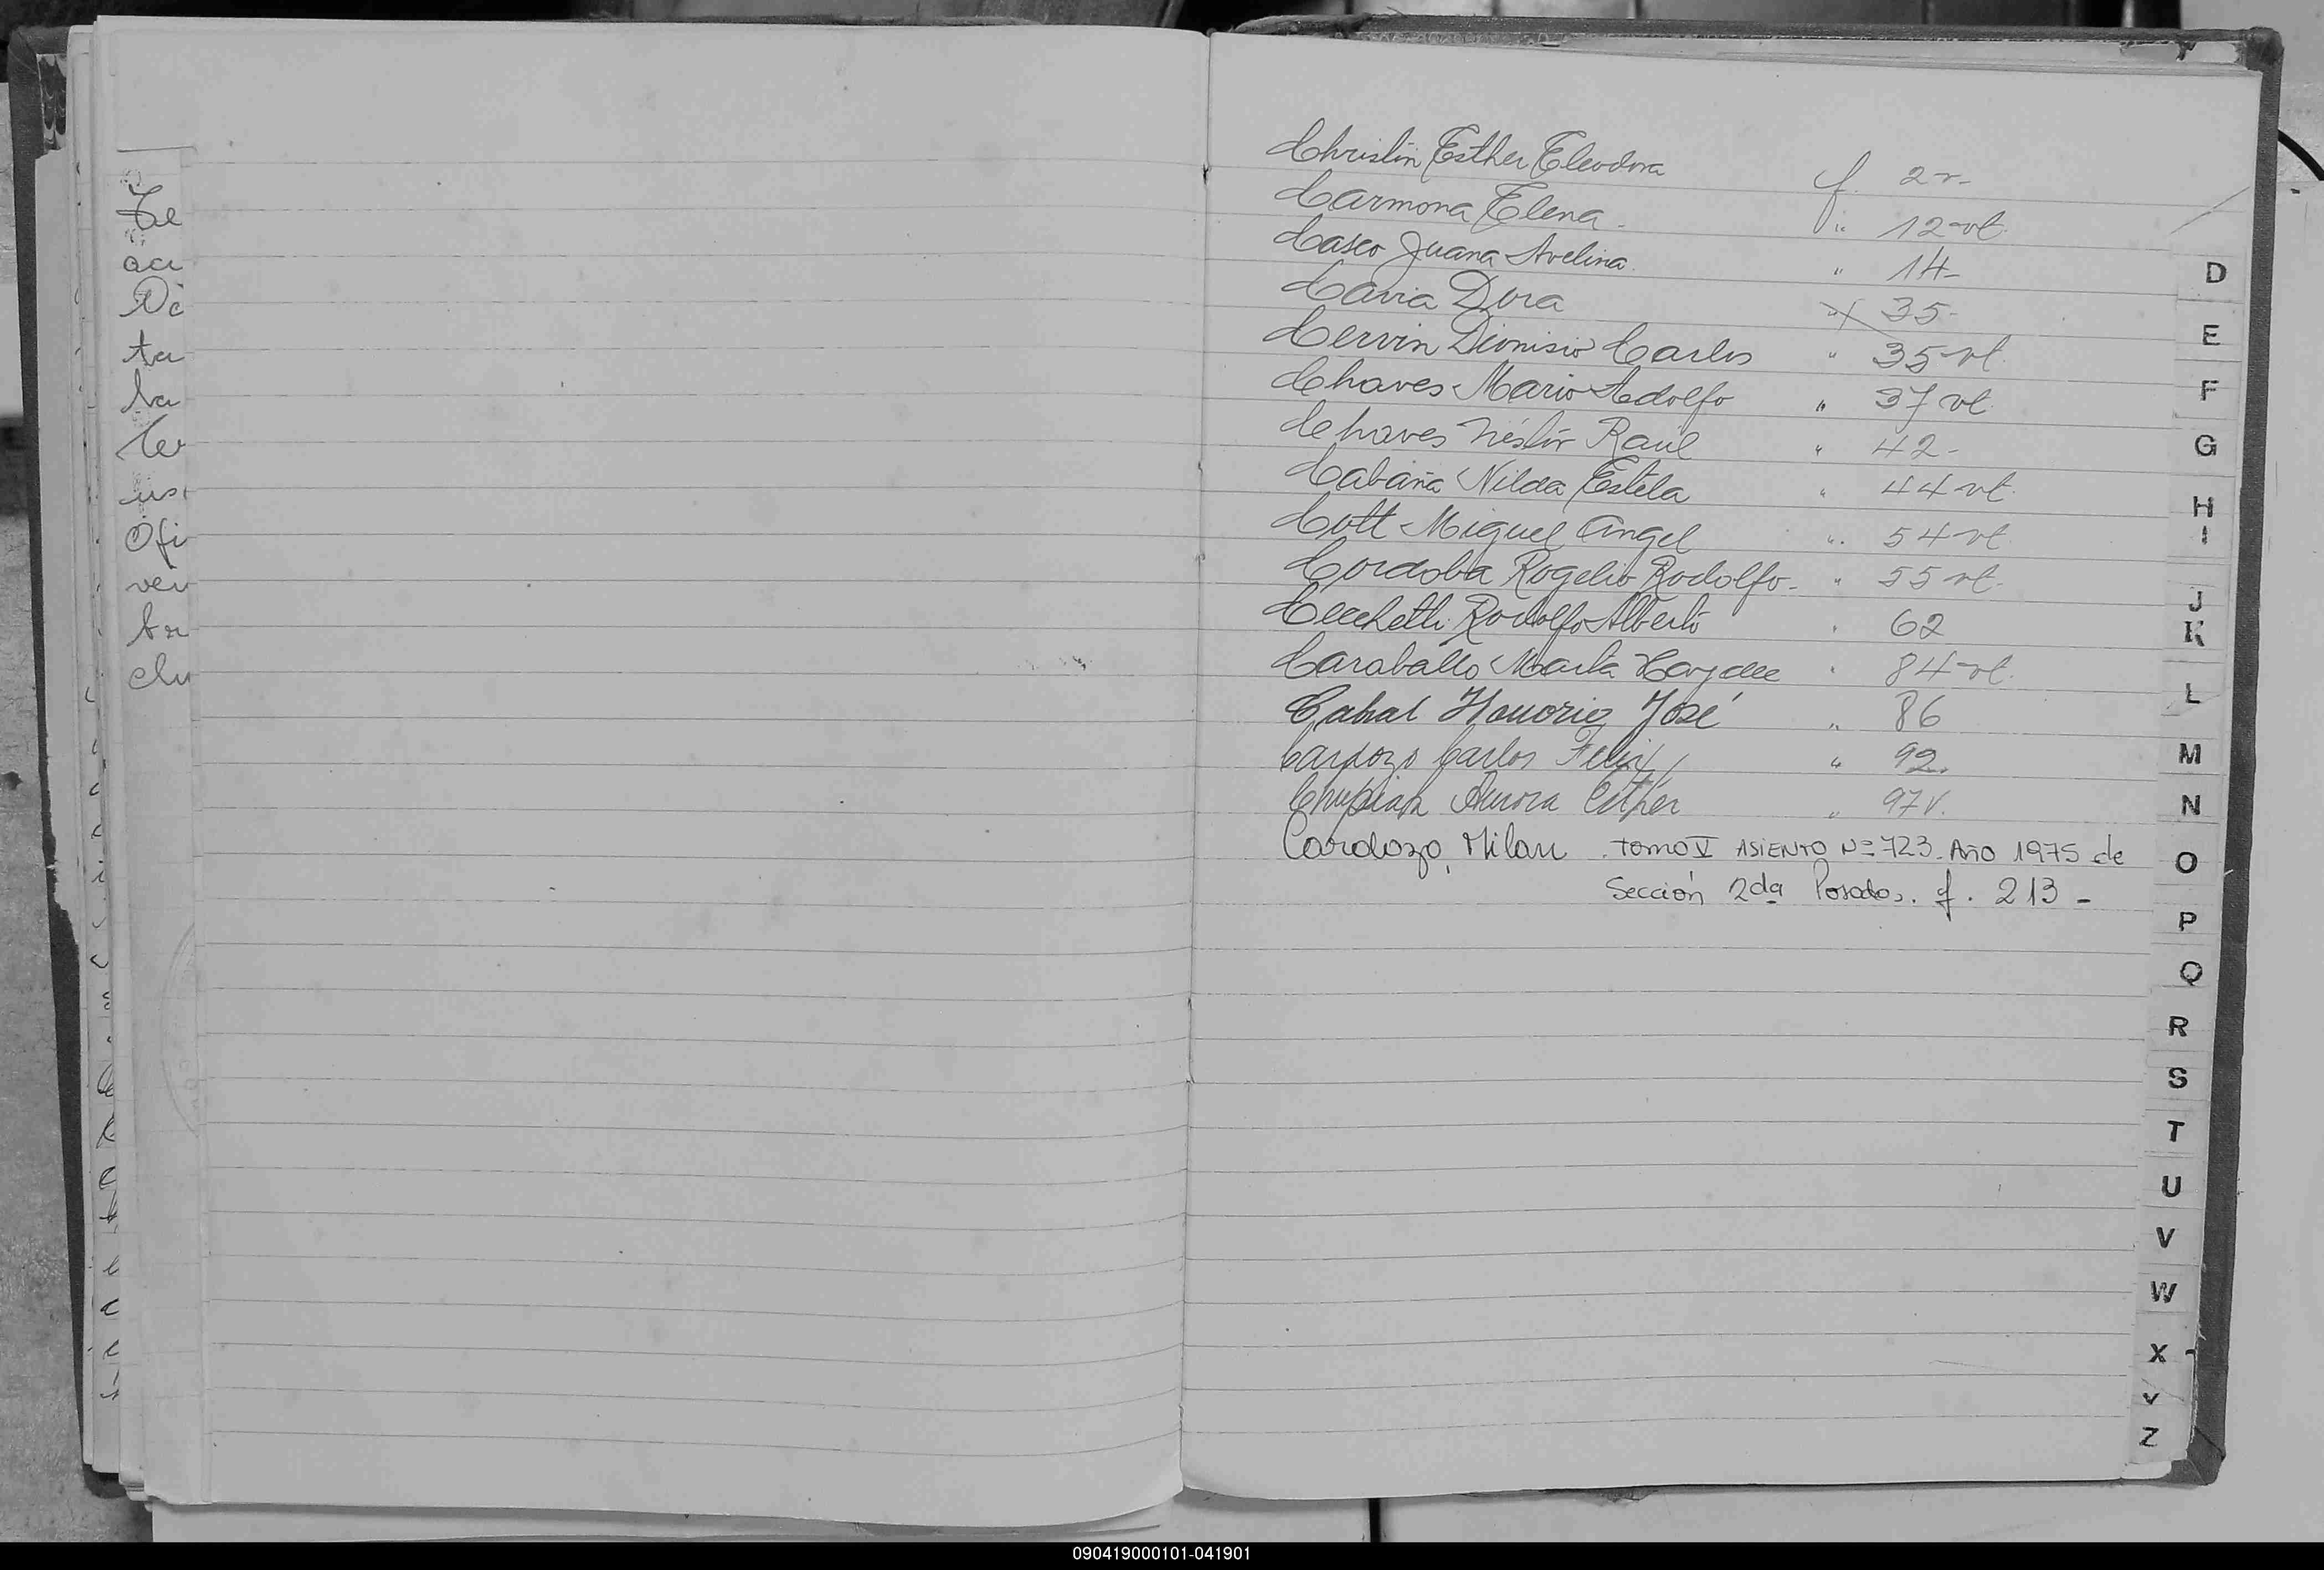 Te
aci
De
ta
la
ler
us
Ofi
ven
br
clu
Christin Esther Eleodora f. 2 v-
Carmona Elena. " 12 vt.
Casco Juana Avelina. " 14-
Cavia Dora " 35-
Cervin Dionisio Carlos " 35 vt.
Chaves Mario Adolfo " 37 vt.
Chaves Néstor Raúl " 42-
Cabaña Nilda Estela " 44 vt.
Cott Miguel Angel " 54 vt
Cordoba Rogelio Rodolfo- " 55 vt.
Cecchetti Rodolfo Alberto " 62
Caraballo Marta Haydee " 84 vt.
Cabral Honorio José " 86
Cardozo Carlos Felix " 92.
Aurora Esther " 97 v.
Cardozo, Milan. TOMO V ASIENTO Nº 723. Año 1975 de
Sección 2da Posadas. f. 213 -
D
E
F
G
H
I
J
K
L
M
N
O
P
Q
R
S
T
U
V
W
X
Y
Z
090419000101-041901